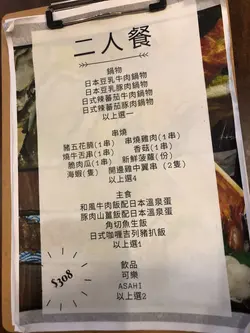 二人餐
鍋物
日本豆乳牛肉鍋物
日本豆乳豚肉鍋物
日式辣蕃茄牛肉鍋物
日式辣蕃茄豚肉鍋物
以上選一
串燒
豬五花腩(1串) 串燒雞肉(1串)
燒牛舌串(1串) 香菇(1串)
脆肉瓜(1串) 新鮮菠蘿(份)
海蝦(隻) 開邊雞中翼串 (2隻)
以上選4
主食
和風牛肉飯配日本溫泉蛋
豚肉山薑飯配日本溫泉蛋
角切魚生飯
日式咖喱吉列豬扒飯
以上選1
$308
飲品
可樂
ASAHI
以上選2